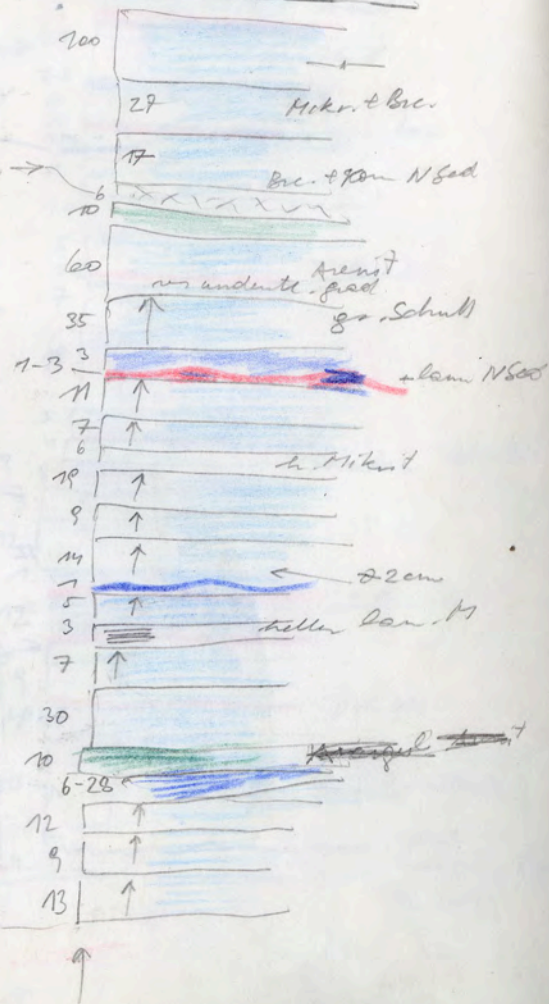 100
27 Mikr. + Brc.
17
Brc. + Kom NSed
6
10
60 Arenit
undeutl. grad
35 gr. Schutt
3
1-3
11 lam NSed
7
6
h. Mikrit
19
9
14
1 2 cm
5
3 heller lam. M
7
30
10
6-28
12
9
13